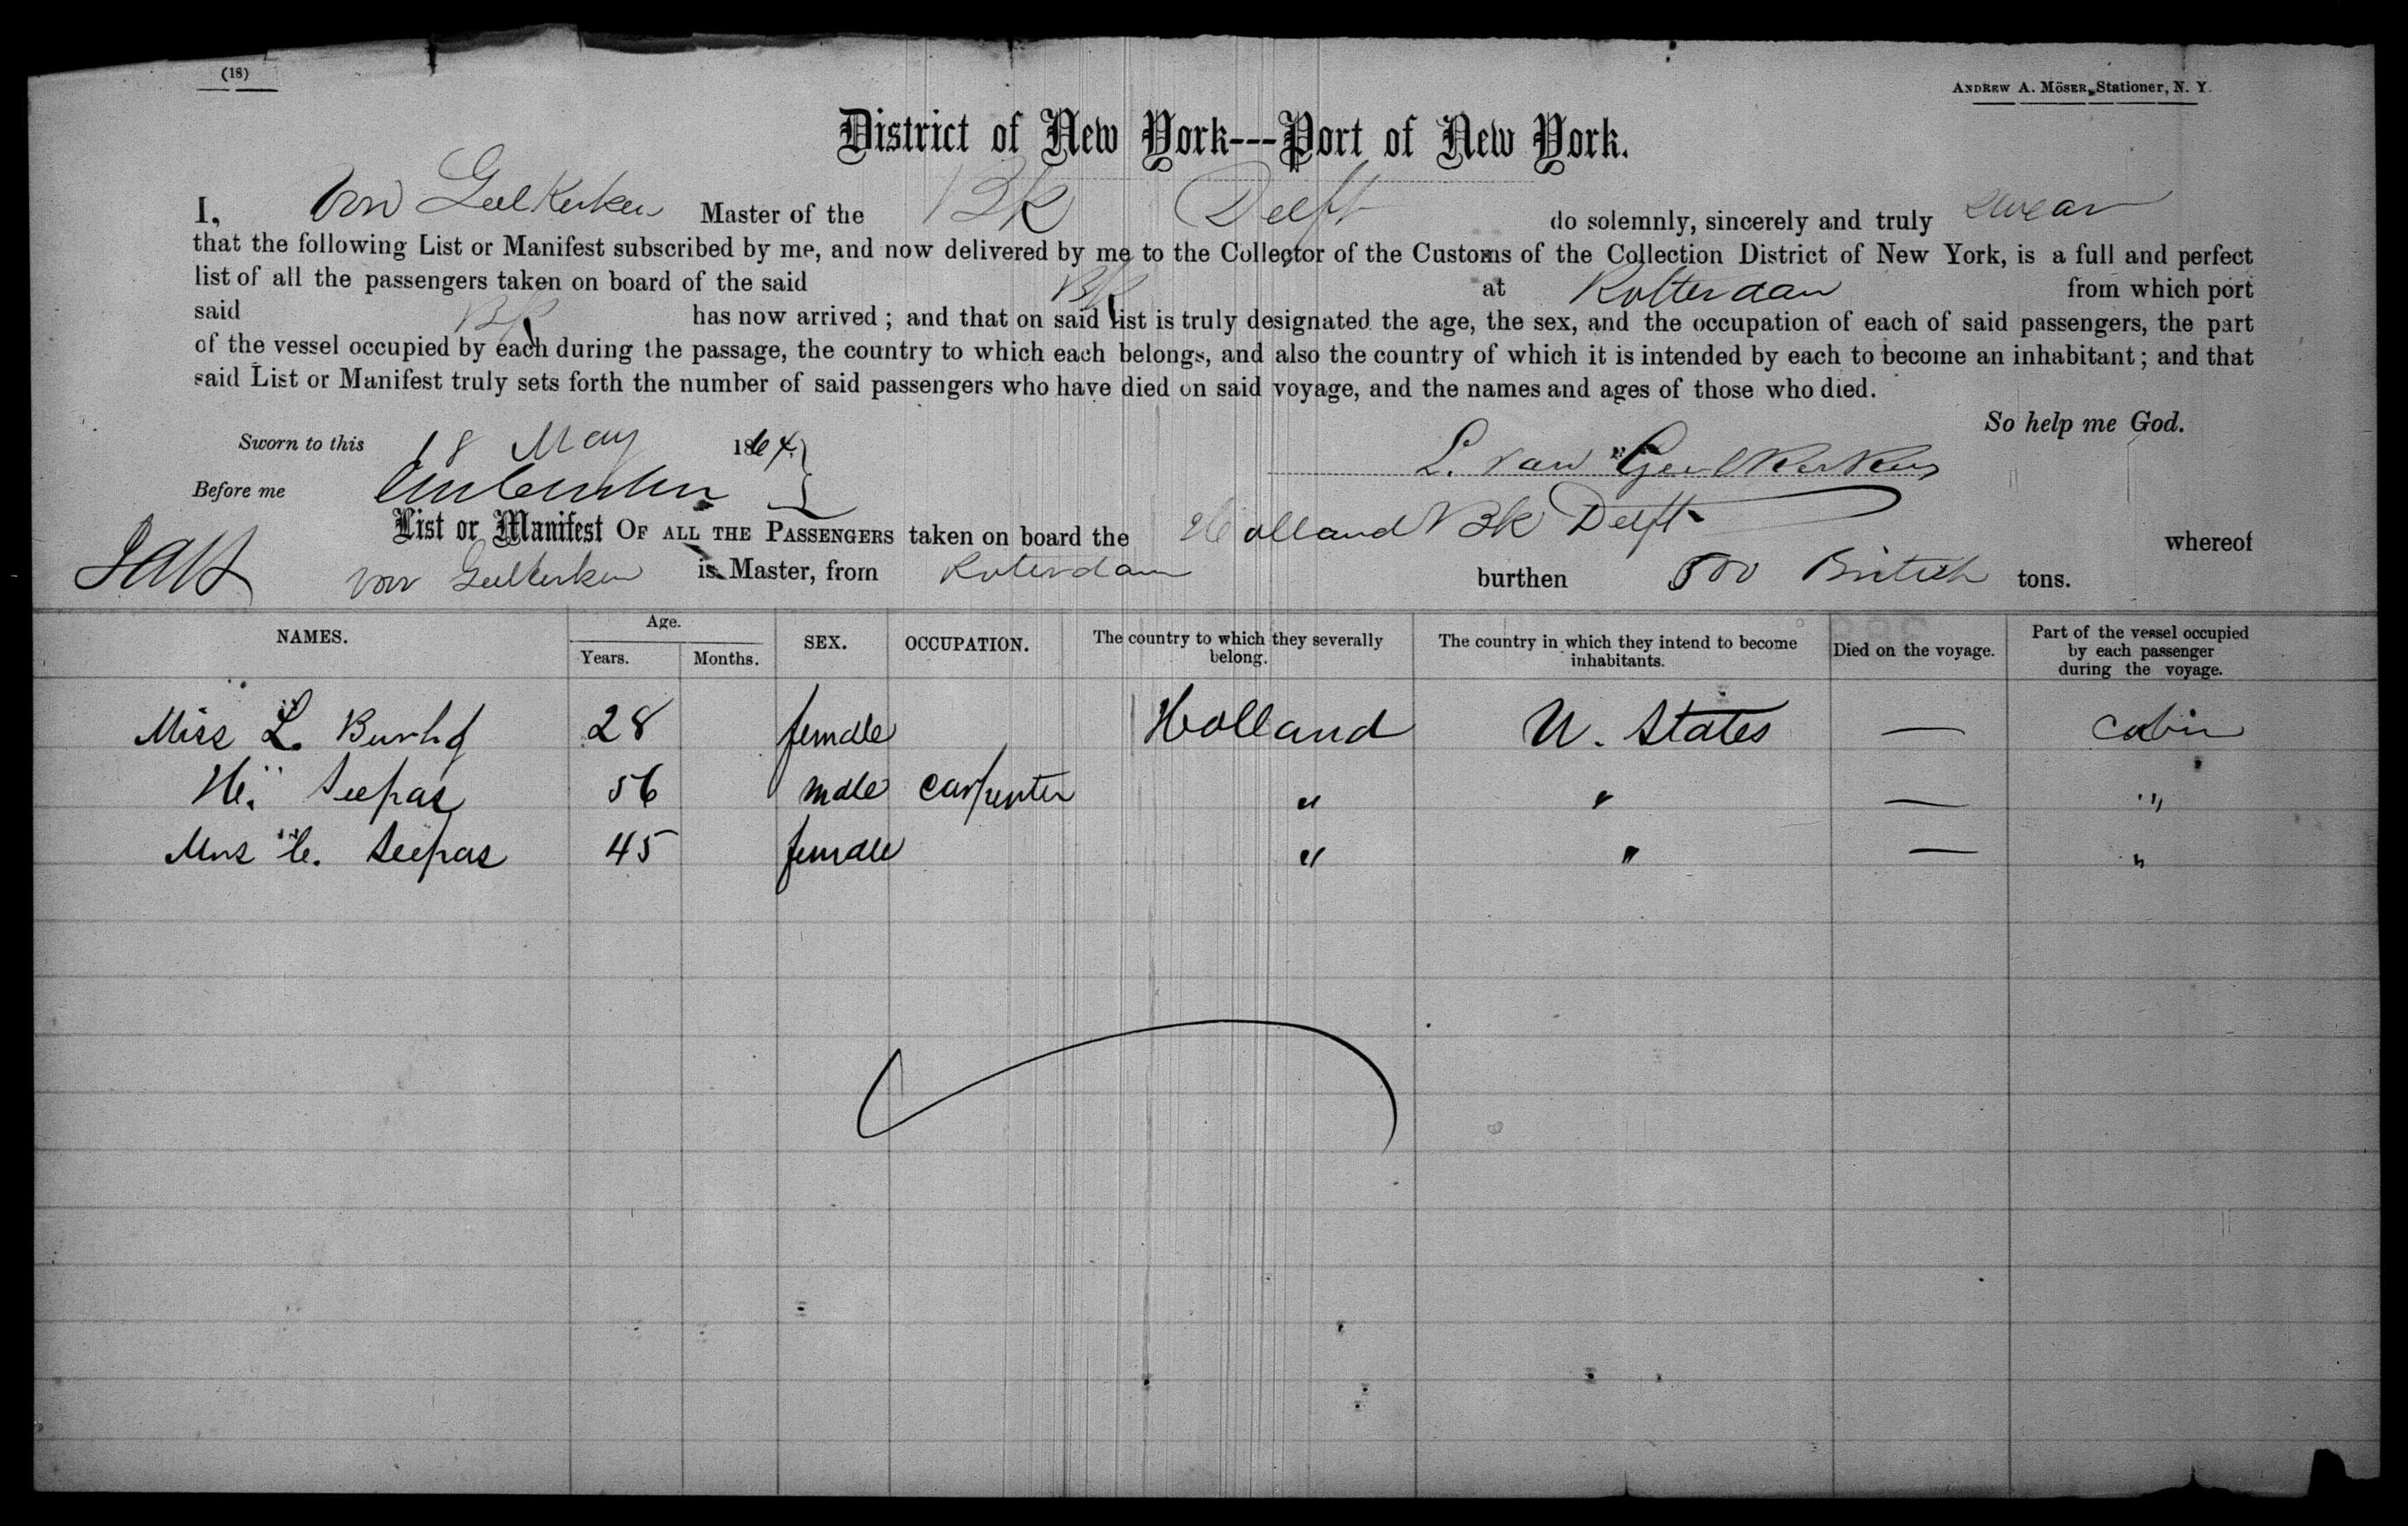 (18)
ANDREW A. MÖSER, Stationer, N. Y.
District of New York---Port of New York.
I, Von Geelkerken Master of the Bk Delft do solemnly, sincerely and truly swear
that the following List or Manifest subscribed by me, and now delivered by me to the Collector of the Customs of the Collection District of New York, is a full and perfect
list of all the passengers taken on board of the said Bk at Rotterdam from which port
said Bk has now arrived; and that on said list is truly designated the age, the sex, and the occupation of each of said passengers, the part
of the vessel occupied by each during the passage, the country to which each belongs, and also the country of which it is intended by each to become an inhabitant; and that
said List or Manifest truly sets forth the number of said passengers who have died on said voyage, and the names and ages of those who died.
So help me God.
Sworn to this 18 May 1864.
L. van Geelkerken
Before me
List or Manifest OF ALL THE PASSENGERS taken on board the Holland Bk Delft whereof
von Geelkerken is Master, from Roterdam burthen 500 British tons.
NAMES. Age. Years. Months. SEX. OCCUPATION. The country to which they severally belong. The country in which they intend to become inhabitants. Died on the voyage. Part of the vessel occupied by each passenger during the voyage.
Miss L. 28 female Holland U. States — Cabin
He. Seepas 56 male carpenter " " — "
Mrs Seepas 45 female " " — "